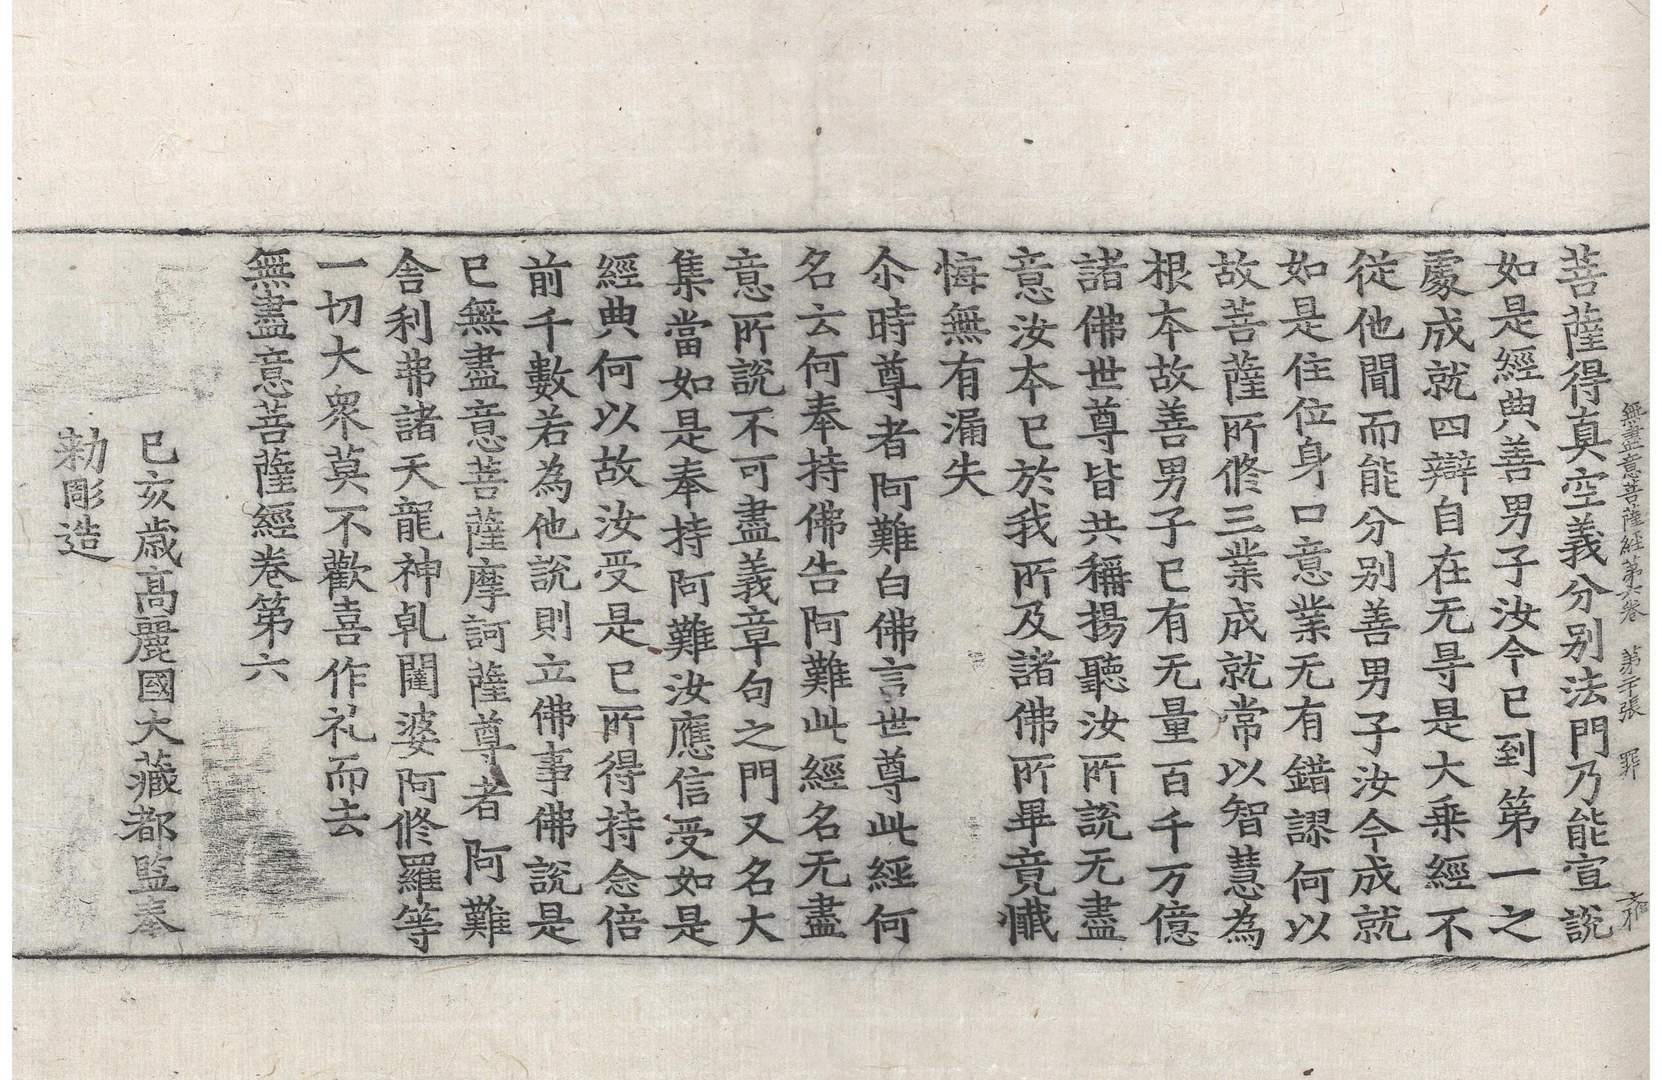 無盡意菩薩經第六卷 第十張 罪
菩薩得真空義分别法門乃能宣說
如是經典善男子汝今已到第一之
處成就四辯自在无㝵是大乘經不
從他聞而能分别善男子汝今成就
如是住位身口意業无有錯謬何以
故菩薩所修三業成就常以智慧為
根本故善男子已有无量百千万億
諸佛世尊皆共稱揚聽汝所說无盡
意汝本已於我所及諸佛所畢竟懺
悔無有漏失
尒時尊者阿難白佛言世尊此經何
名云何奉持佛告阿難此經名无盡
意所說不可盡義章句之門又名大
集當如是奉持阿難汝應信受如是
經典何以故汝受是已所得持念倍
前千數若為他說則立佛事佛說是
已無盡意菩薩摩訶薩尊者阿難
舍利弗諸天龍神乹闥婆阿修羅等
一切大衆莫不歡喜作礼而去
無盡意菩薩經卷第六
己亥歲髙麗國大藏都監奉
勑彫造